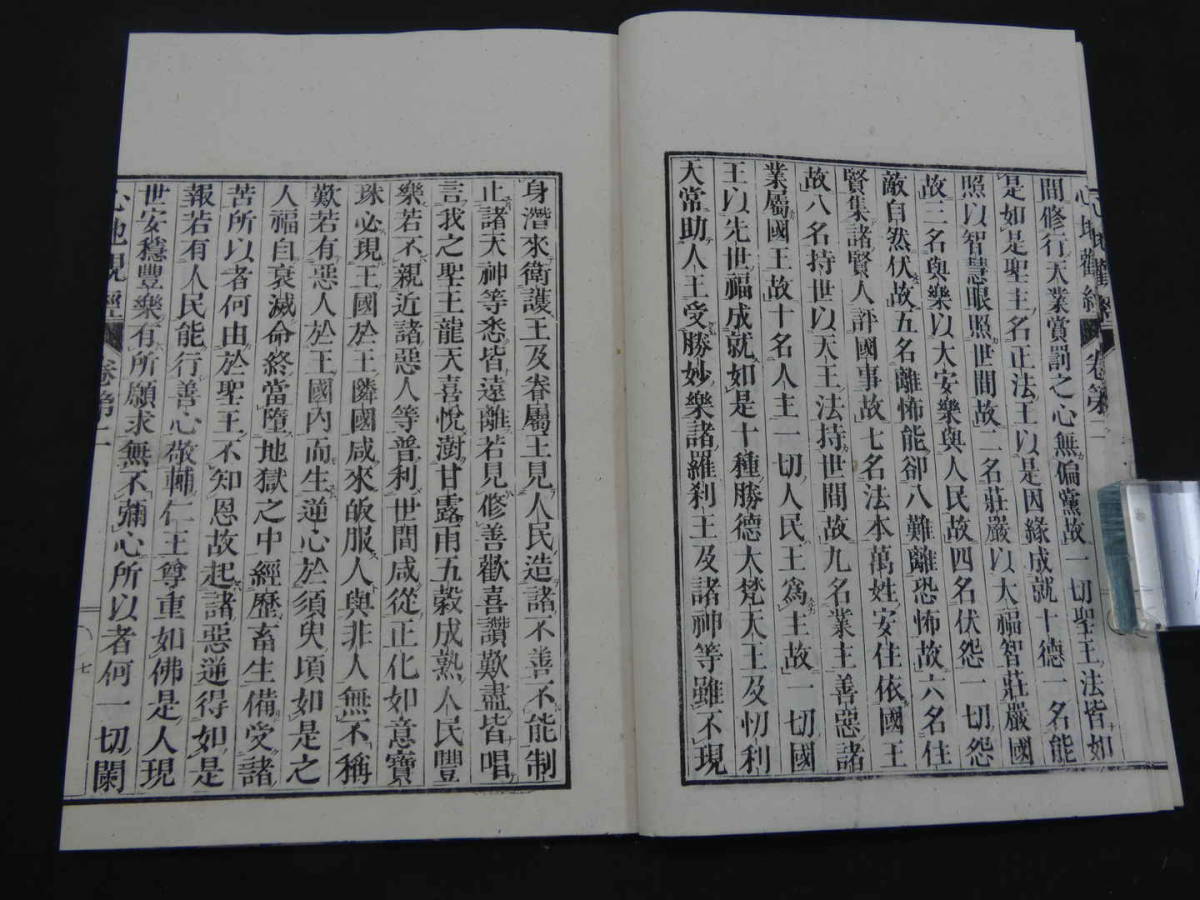 心地觀經 卷第二
間修行天業賞罰之心無偏黨故一切聖王法皆如
是如是聖主名正法王以是因緣成就十德一名能
照以智慧眼照世間故二名莊嚴以大福智莊嚴國
故三名與樂以大安樂與人民故四名伏怨一切怨
敵自然伏故五名離怖能卻八難離恐怖故六名住
賢集諸賢人評國事故七名法本萬姓安住依國王
故八名持世以天王法持世間故九名業主善惡諸
業屬國王故十名人主一切人民王為主故一切國
王以先世福成就如是十種勝德大梵天王及忉利
天常助人王受勝妙樂諸羅刹王及諸神等雖不現
身潛來衛護王及眷屬王見人民造諸不善不能制
止諸天神等悉皆遠離若見修善歡喜讚歎盡皆唱
言我之聖王龍天喜悅澍甘露雨五穀成熟人民豐
樂若不親近諸惡人等普利世間咸從正化如意寶
珠必現王國於王隣國咸來皈服人與非人無不稱
歎若有惡人於王國內而生逆心於須臾頃如是之
人福自衰滅命終當墮地獄之中經歷畜生備受諸
苦所以者何由於聖王不知恩故起諸惡逆得如是
報若有人民能行善心敬輔仁王尊重如佛是人現
世安穩豐樂有所願求無不彌心所以者何一切闌
心地觀經 卷第二 七